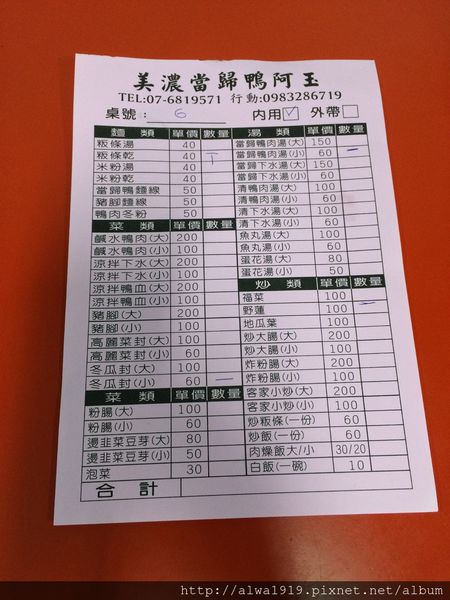 美濃當歸鴨阿玉
TEL:07-6819571 行動:0983286719
桌號: 6 內用☑ 外帶□
麵類 單價 數量
粄條湯 40
粄條乾 40 T
米粉湯 40
米粉乾 40
當歸鴨麵線 50
豬腳麵線 50
鴨肉冬粉 50
菜類 單價 數量
鹹水鴨肉(大) 200
鹹水鴨肉(小) 100
涼拌下水(大) 200
涼拌下水(小) 100
涼拌鴨血(大) 200
涼拌鴨血(小) 100
豬腳(大) 200
豬腳(小) 100
高麗菜封(大) 100
高麗菜封(小) 60
冬瓜封(大) 100
冬瓜封(小) 60 一
菜類 單價 數量
粉腸(大) 100
粉腸(小) 60
燙韭菜豆芽(大) 80
燙韭菜豆芽(小) 50
泡菜 30
合計
湯類 單價 數量
當歸鴨肉湯(大) 150
當歸鴨肉湯(小) 60 一
當歸下水湯(大) 150
當歸下水湯(小) 60
清鴨肉湯(大) 100
清鴨肉湯(小) 60
清下水湯(大) 100
清下水湯(小) 60
魚丸湯(大) 100
魚丸湯(小) 60
蛋花湯(大) 80
蛋花湯(小) 50
炒類 單價 數量
福菜 100
野蓮 100 一
地瓜葉 100
炒大腸(大) 200
炒大腸(小) 100
炸粉腸(大) 200
炸粉腸(小) 100
客家小炒(大) 200
客家小炒(小) 100
炒粄條(一份) 60
炒飯(一份) 60
肉燥飯大/小 30/20
白飯(一碗) 10
http://alwa1919.pixnet.net/album